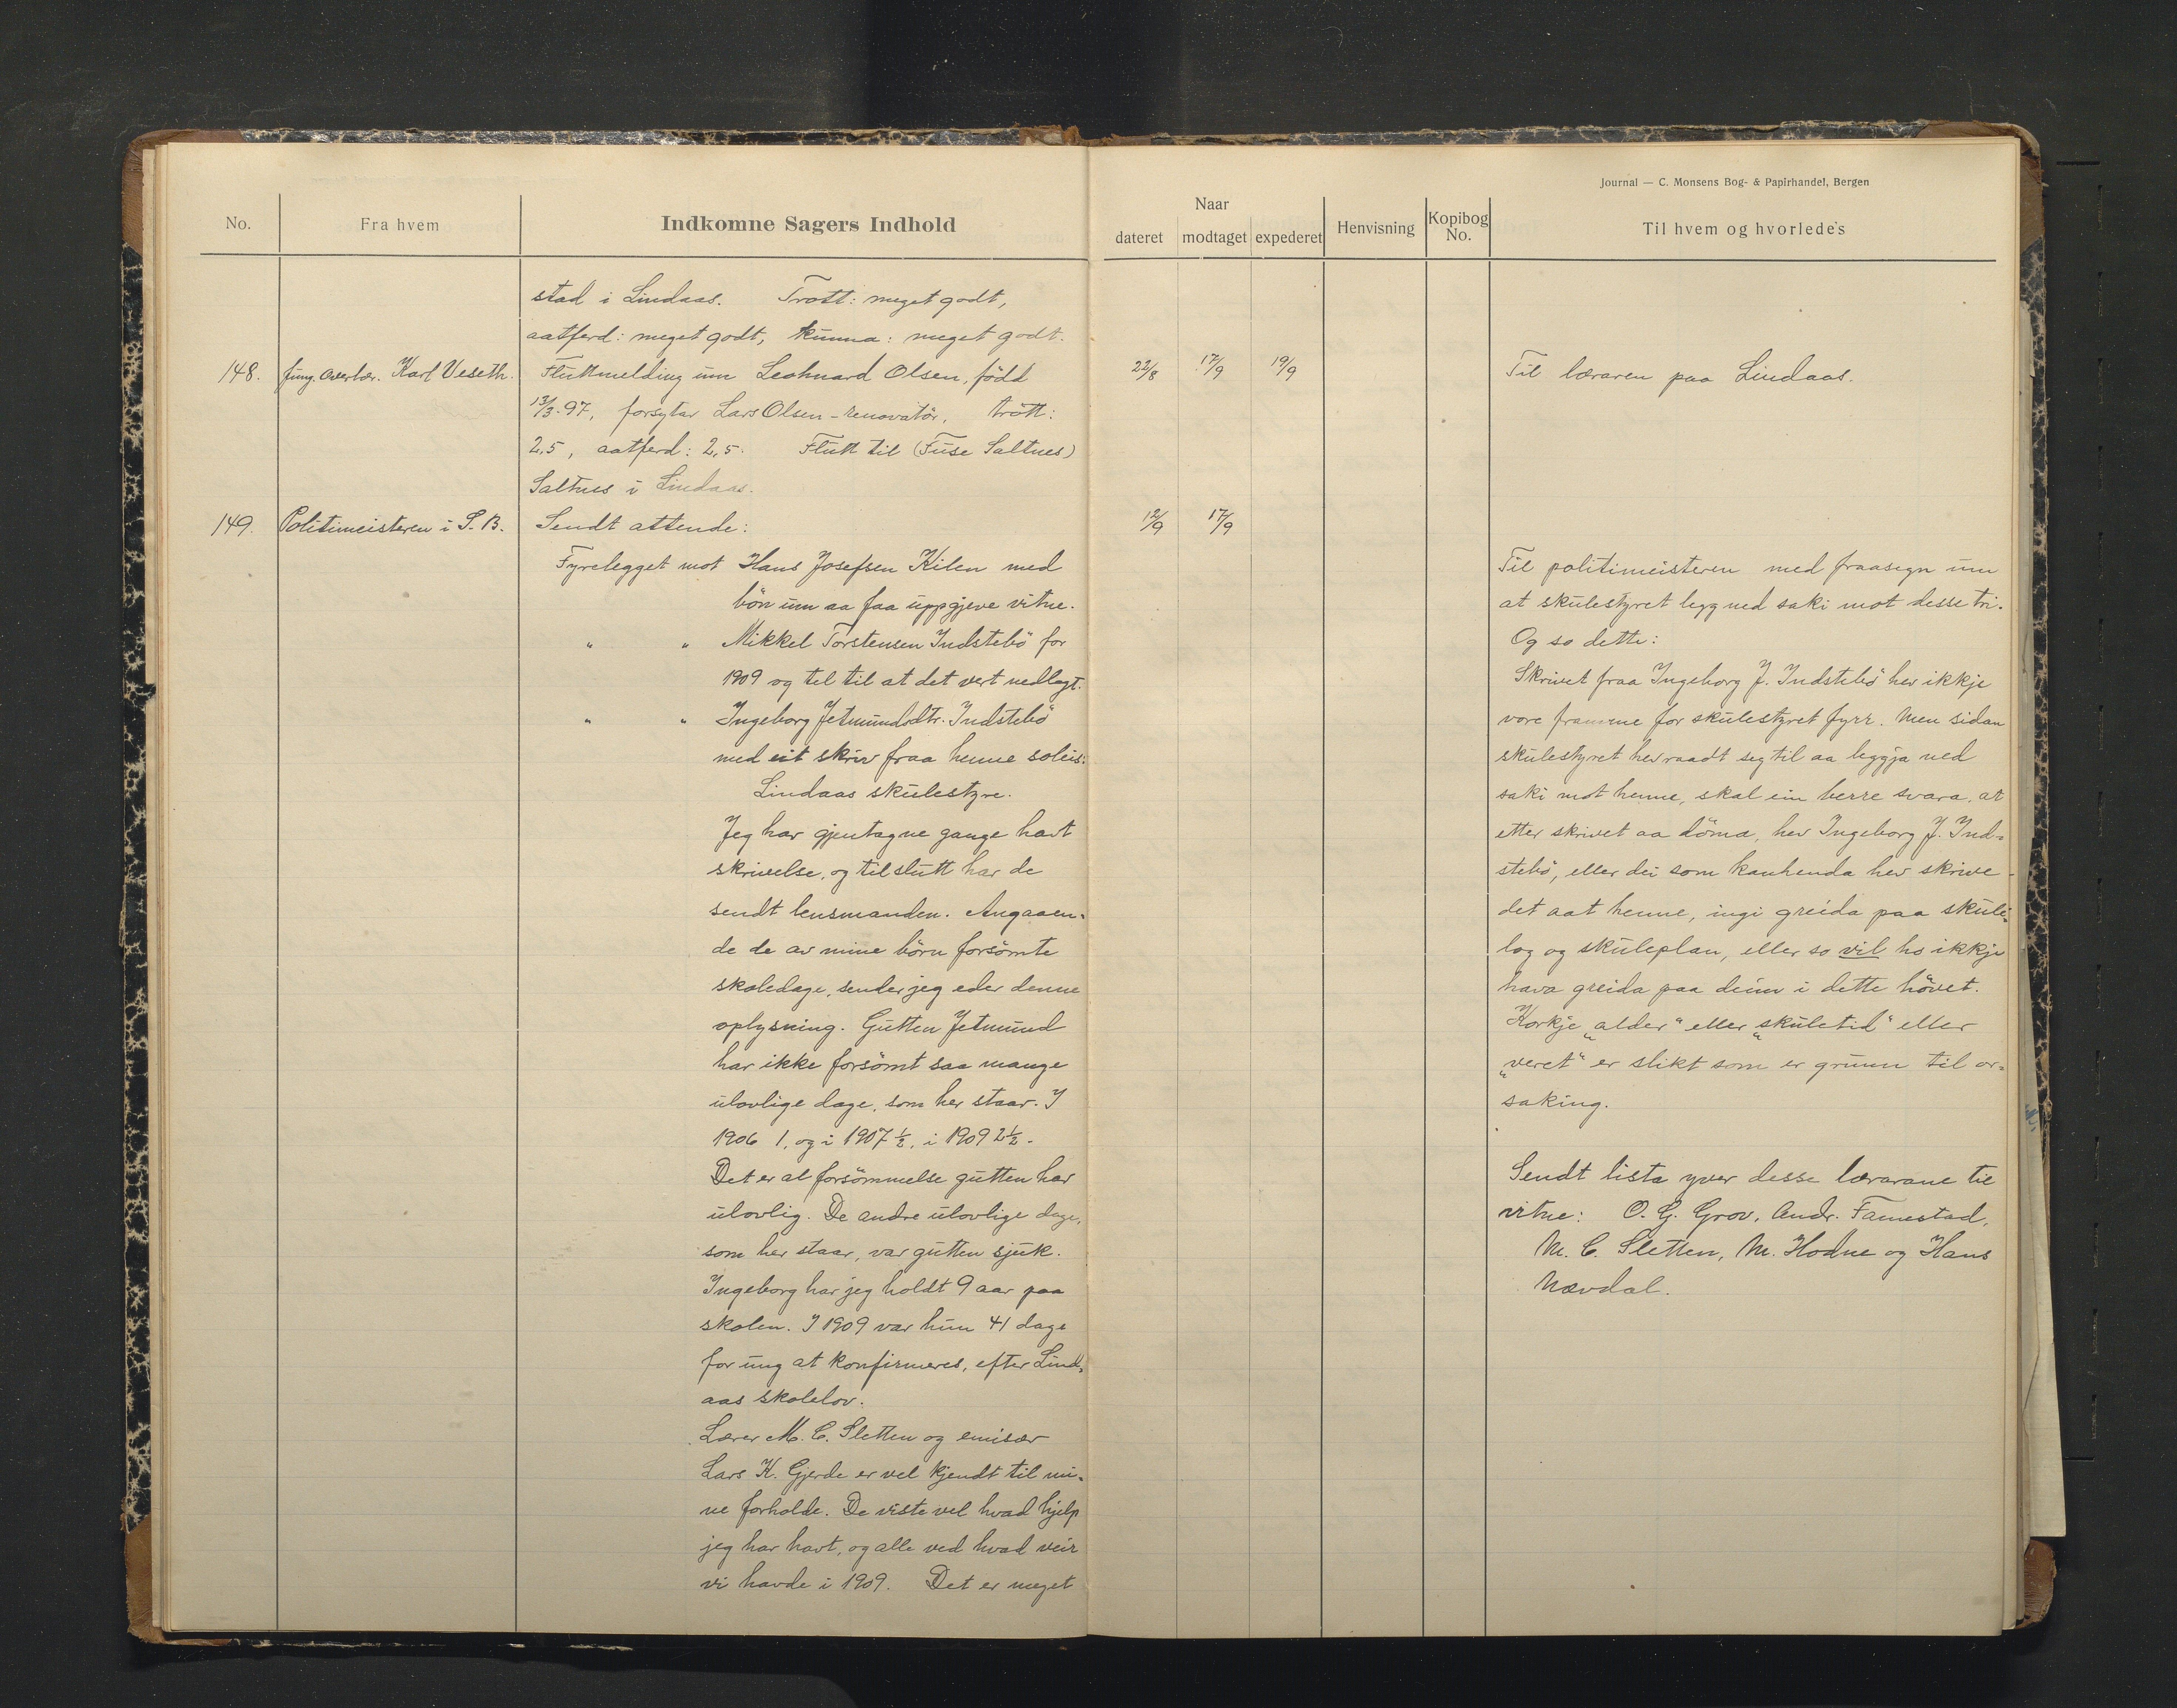 Journal — C. Monsens Bog- & Papirhandel, Bergen
No. Fra hvem Indkomne Sagers Indhold
Naar
dateret modtaget expederet Henvisning Kopibog No. Til hvem og hvorledes
stad i Lindaas. Trott: meget godt,
aatferd: meget godt, kunna: meget godt.
148. fung. overlær. Karl Veseth. Fluttmelding um Leohnard Olsen, född
13/3-97, forsytar Lars Olsen - renovatör, trött:
2,5, aatferd: 2,5. Flutt til (Fuse Saltnes)
Saltnes i Lindaas.
149. Politimeisteren i S. B. Sendt attende:
Fyrelegget mot Hans Josefsen Kilen med
bön um aa faa uppgjeve vitne.
" " Mikkel Torstensen Indstebö for
1909 og tel til at det vert nedlagt.
" " Ingeborg Jetmundsdtr. Indstebö
med eit skriv fraa henne soleis:
Lindaas skulestyre.
Jeg har gjentagne gange havt
skrivelse, og til slutt har de
sendt lensmanden. Angaaen-
de de av mine börn forsömte
skoledage, sender jeg eder denne
oplysning. Gutten Jetmund
har ikke forsömt saa mange
ulovlige dage, som her staar. I
1906 1, og i 1907 ½, i 1909 2½.
Det er al forsömmelse gutten har
ulovlig. De andre ulovlige dage,
som her staar, var gutten sjuk.
Ingeborg har jeg holdt 9 aar paa
skolen. I 1909 var hun 41 dage
for ung at konfirmeres, efter Lind-
aas skolelov.
Lærer M. C. Sletten og emisær
Lars K. Gjerde er vel kjendt til mi-
ne forholde. De viste vel hvad hjelp
jeg har havt, og alle ved hvad veir
vi havde i 1909. Det er meget
22/8 17/9 19/9 Til læraren paa Lindaas.
12/9 17/9
Til politimeisteren med fraasegn um
at skulestyret legg ned saki mot desse tri.
Og so dette:
Skrivet fraa Ingeborg J. Indstebö hev ikkje
vore framme for skulestyret fyrr. Men sidan
skulestyret hev raadt seg til aa leggja ned
saki mot henne, skal ein berre svara, at
etter skrivet aa döma, hev Ingeborg J. Ind-
stebö, eller dei som kanhenda hev skrive
det aat henne, ingi greida paa skule-
log og skuleplan, eller so vil ho ikkje
hava greida paa deim i dette hövet.
Korkje „alder" eller „skuletid" eller
„veret" er slikt som er grunn til or-
saking.
Sendt lista yver desse lærarane til
vitne: O. G. Grov, Andr. Famestad,
M. C. Sletten, M. Hodne og Hans
Nævdal.